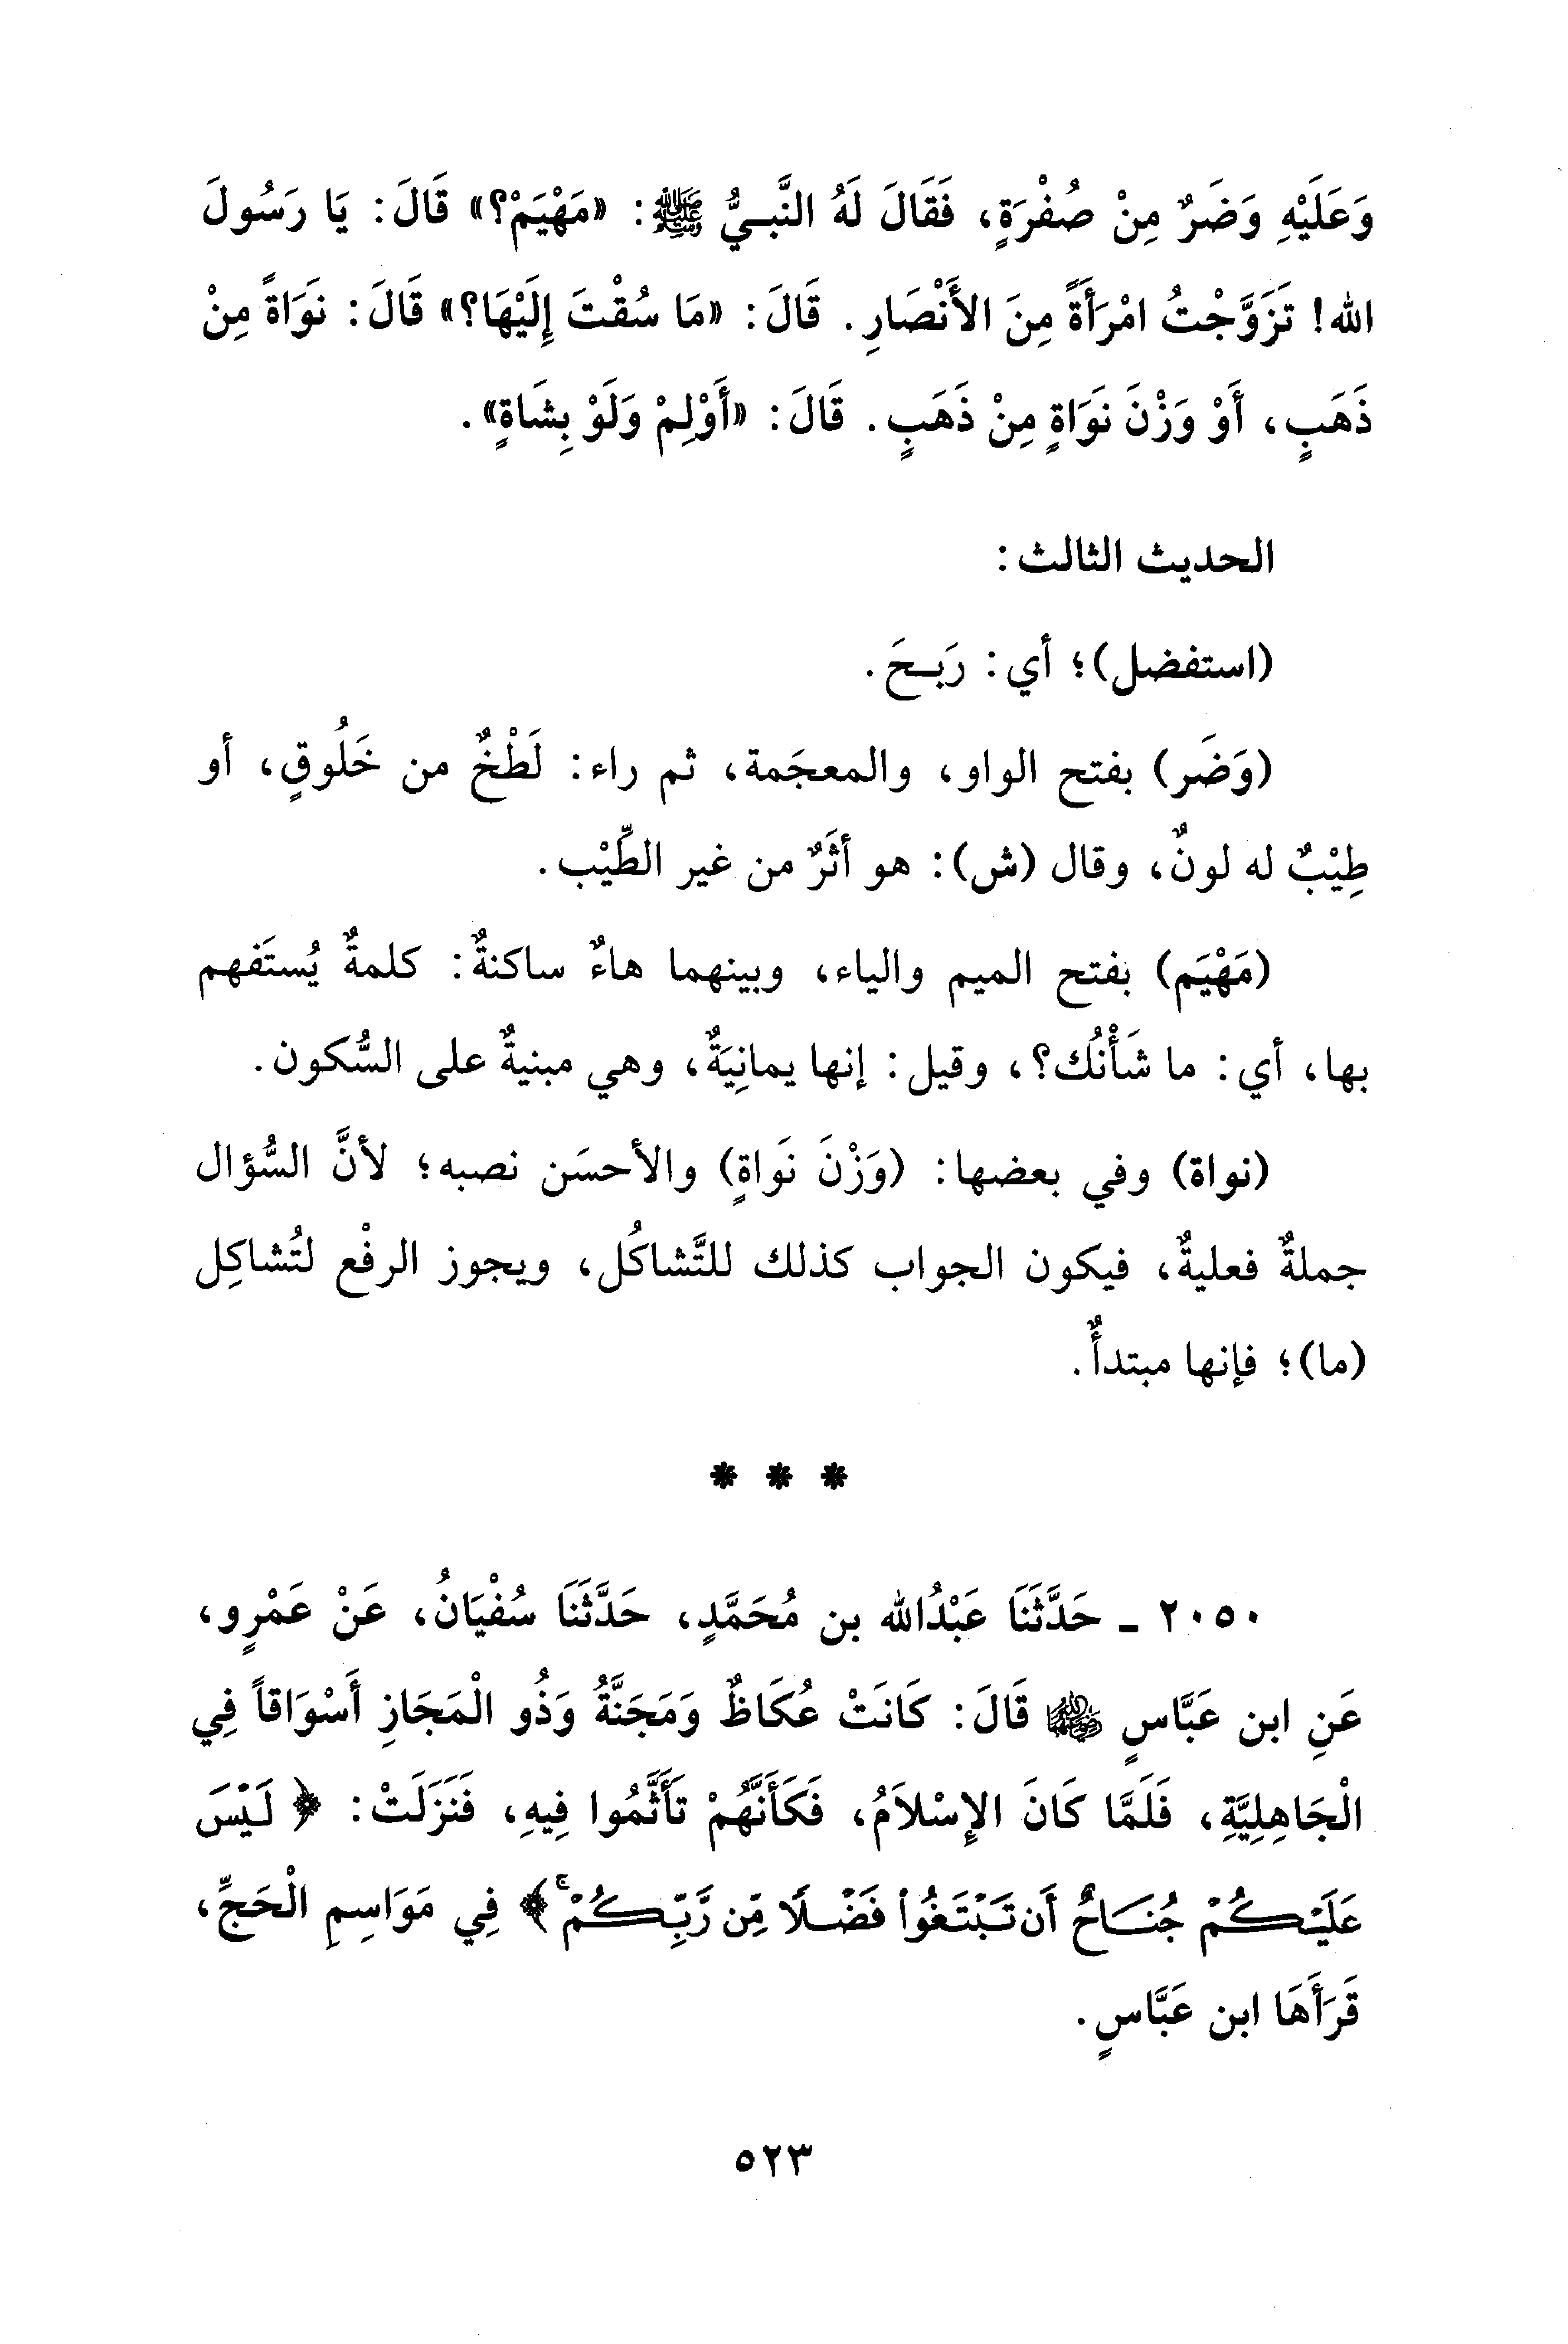 وَعَلَيْهِ وَضَرٌ مِنْ صُفْرَةٍ، فَقَالَ لَهُ النَّبِيُّ ﷺ: «مَهْيَمْ؟» قَالَ: يَا رَسُولَ
الله! تَزَوَّجْتُ امْرَأَةً مِنَ الأَنْصَارِ. قَالَ: «مَا سُقْتَ إِلَيْهَا؟» قَالَ: نَوَاةً مِنْ
ذَهَبٍ، أَوْ وَزْنَ نَوَاةٍ مِنْ ذَهَبٍ. قَالَ: «أَوْلِمْ وَلَوْ بِشَاةٍ».
الحديث الثالث:
(استفضل)؛ أي: رَبحَ.
(وَضَر) بفتح الواو، والمعجَمة، ثم راء: لَطْخٌ من خَلُوقٍ، أو
طِيْبٌ له لونٌ، وقال (ش): هو أثَرٌ من غير الطِّيْب.
(مَهْيَم) بفتح الميم والياء، وبينهما هاءٌ ساكنةٌ: كلمةٌ يُستَفهم
بها، أي: ما شَأْنُك؟، وقيل: إنها يمانِيَةٌ، وهي مبنيةٌ على السُّكون.
(نواة) وفي بعضها: (وَزْنَ نَواةٍ) والأحسَن نصبه؛ لأنَّ السُّؤال
جملةٌ فعليةٌ، فيكون الجواب كذلك للتَّشاكُل، ويجوز الرفْع لتُشاكِل
(ما)؛ فإنها مبتدأٌ.
* * *
٢٠٥٠ - حَدَّثَنَا عَبْدُالله بن مُحَمَّدٍ، حَدَّثَنَا سُفْيَانُ، عَنْ عَمْرٍو،
عَنِ ابن عَبَّاسٍ ﵁ قَالَ: كَانَتْ عُكَاظٌ وَمَجَنَّةُ وَذُو الْمَجَازِ أَسْوَاقاً فِي
الْجَاهِلِيَّةِ، فَلَمَّا كَانَ الإِسْلاَمُ، فَكَأَنَّهُمْ تَأَثَّمُوا فِيهِ، فَنَزَلَتْ: ﴿لَيْسَ
عَلَيْكُمْ جُنَاحٌ أَن تَبْتَغُواْ فَضْلًا مِّن رَّبِّكُمْ ۚ﴾ فِي مَوَاسِمِ الْحَجِّ،
قَرَأَهَا ابن عَبَّاسٍ.
٥٢٣